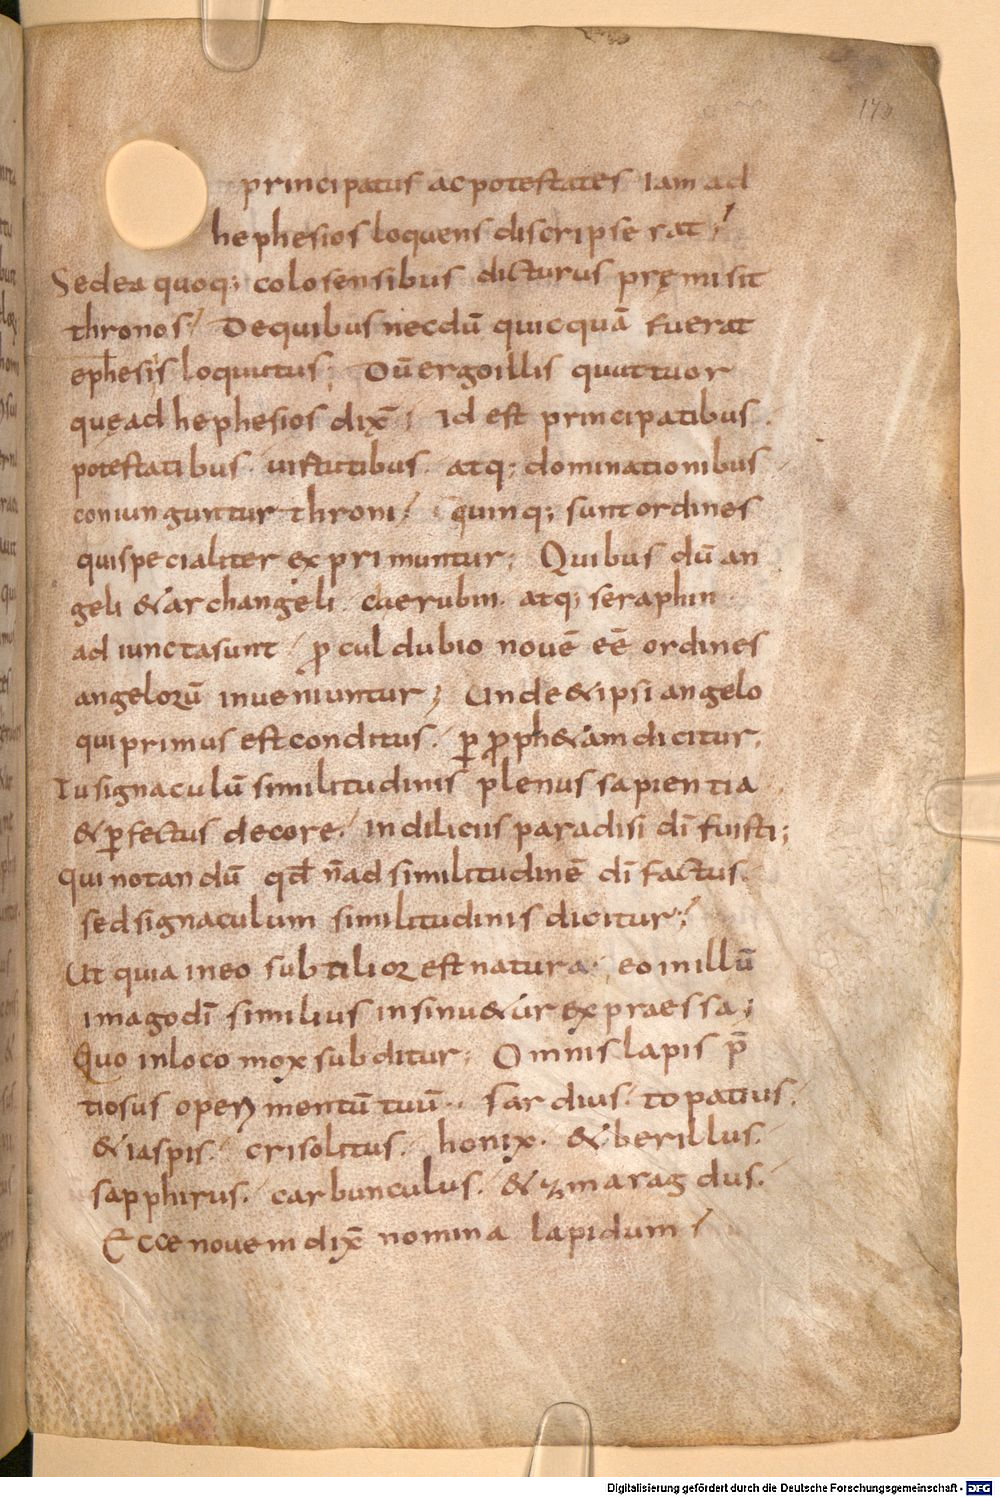 170
principatus ac potestates Iam ad
hephesios loquens discripserat;
Sed ea quoq; colosensibus dicturus pręmisit
thronos; De quibus necdū quicquā fuerat
ephesiis loquutus; Dū ergo illis quattuor
quę ad hephesios dix̄; Id est principatibus.
potestatibus. uirtutibus. atq; dominationibus
coniunguntur throni; quinq; sunt ordines
qui specialiter exprimuntur; Quibus dū an
geli & archangeli. cherubin. atq; seraphin
adiuncta sunt; ꝓcul dubio nouē eē ordines
angeloꝝū inueniuntur; Unde & ipsi angelo
qui primus est conditus. ꝑ ꝓph&am dicitur.
Tu signaculū similitudinis plenus sapientia
& ꝑfectus decore. in diliciis paradisi dī fuisti;
Qui notandū qđ n̄ ad similitudinē dī factus.
sed signaculum similitudinis dicitur;
Ut quia in eo subtilior est natura. eo in illū
imago dī similius insinu&ur expraessa;
Quo in loco mox subditur; Omnis lapis p̄
tiosus operimentū tuū. Sardius. topatius.
& iaspis. crisolitus. honix. & berillus.
sapphirus. carbunculus. & zmaragdus.
Ecce nouem dix̄ nomina lapidum;
Digitalisierung gefördert durch die Deutsche Forschungsgemeinschaft - DFG